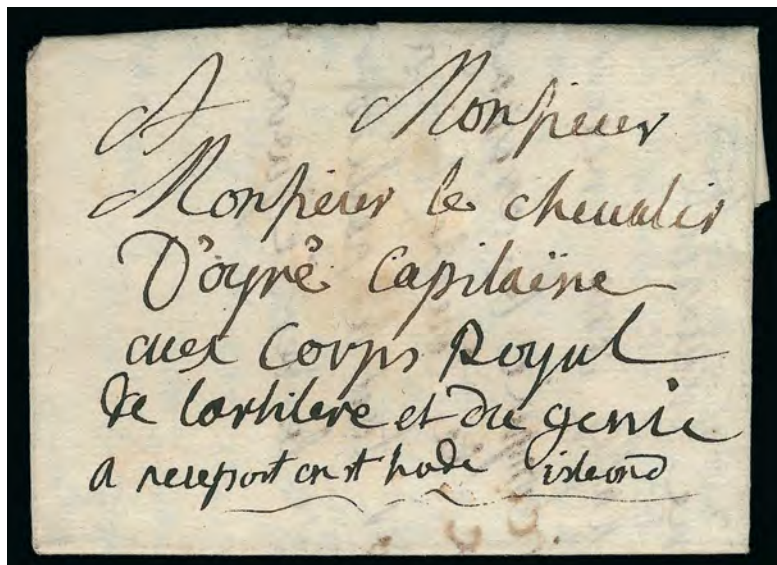 A Monsieur
Monsieur le chevalier
D'oyré Capitaine
aux Corps Royal
de lartilere et du genie
a neuport en rhode island